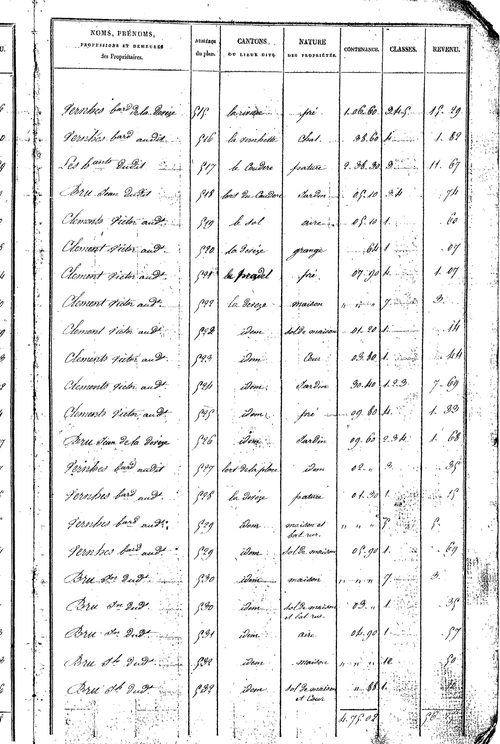 NOMS, PRÉNOMS, PROFESSIONS ET DEMEURES des Propriétaires. NUMÉROS du plan. CANTONS OU LIEUX DITS. NATURE DES PROPRIÉTÉS. CONTENANCE. CLASSES. REVENU.
Vernhes Bard de la Devèze 515 pré 1. 06. 60 2.4.5. 15. 29
Vernhes Bard audit 516 Chat. 38. 60 4. 1. 82
Les hants dudit 517 le Couderc pature 2. 38. 30 3. 11. 67
Bru Jean dudit 518 lort du Couderc Jardin 05. 10 3.4 74
Clements Victor audt. 519 le sol aire 05. 10 1. 60
Clement Victor audt. 520 la Devèze grange 64 1. 07
Clement Victor audt. 521 le Pradel pré 07. 90 4. 1. 07
Clement Victor audt. 522 la Devèze maison " " " 7. 3.
Clement Victor audt. 522 idem sol de maison 01. 20 1. 14
Clements Victor audt. 523 idem Cour 03. 80 1. 44
Clements Victor audt. 524 idem Jardin 30. 40 1.2.3 7. 69
Clements Victor audt. 525 idem pré 09. 80 4. 1. 33
Bru Jean de la Devèze 526 idem Jardin 09. 60 2.3.4 1. 68
Vernhes Bard audit 527 lort de la place idem 02. " 3. 35
Vernhes Bard audt. 528 la Devèze pature 01. 30 1. 15
Vernhes Bard audt. 529 idem maison et bat. rur. " " " 7. 5.
Vernhes Bard audt. 529 idem sol de maison 05. 90 1. 69
Bru Jn dudt. 530 idem maison " " " 7. 3.
Bru Jn dudt. 530 idem sol de maison et bat. rur. 03. " 1. 35
Bru Jn dudt. 531 idem aire 04. 90 1. 57
Bru dudt. 532 idem maison " " " 10. 50
Bru dudt. 532 idem sol de maison et Cour " 88 1. 10
4. 75. 02